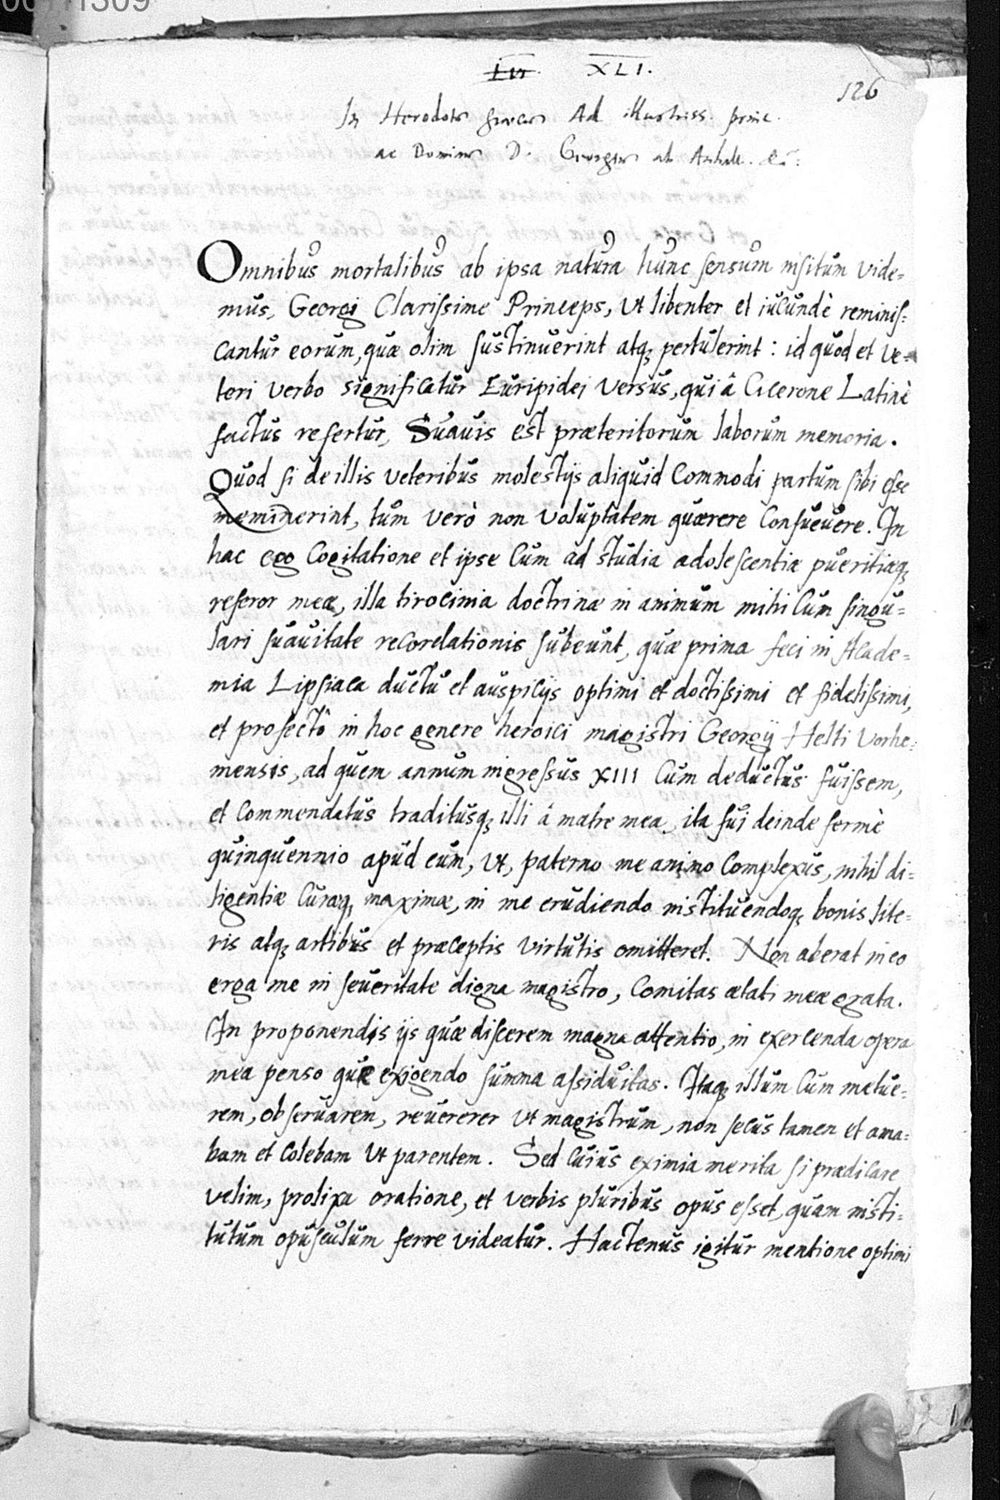 XLI.
126
In Herodotū Græcū Ad illustriss. princ.
ac Dominū D. Georgiū ab Anhalt. &c:
Omnibus mortalibus ab ipsa natura hunc sensum insitum vide-
mus, Georgi Clarissime Princeps, ut libenter et iucundè reminis-
cantur eorum, quæ olim sustinuerint atq; pertulerint: id quod et ve-
teri verbo significatur Euripidei versus, qui â Cicerone Latinè
factus refertur, Suavis est præteritorum laborum memoria.
Quod si de illis veteribus molestijs aliquid commodi partum sibi esse
meminerint, tum verò non voluptatem quærere consuevere. In
hac ego cogitatione et ipse cum ad studia adolescentiæ pueritiæq;
referor meæ, illa tirocinia doctrinæ in animum mihi cum singu-
lari suavitate recordationis subeunt, quæ prima feci in Acade-
mia Lipsiaca ductu et auspicijs optimi et doctissimi et fidelissimi,
et profectò in hoc genere heroici magistri Georgij Helti Vorhe-
mensis, ad quem annum ingressus XIII cum deductus fuissem,
et commendatus traditusq; illi â matre mea, ita fui deinde fermè
quinquennio apud eum, ut, paterno me animo complexus, nihil di-
ligentiæ curæq; maximæ, in me erudiendo instituendoq; bonis lite-
ris atq; artibus et præceptis virtutis omitteret. Non aberat in eo
erga me in severitate digna magistro, comitas ætati meæ grata.
In proponendis ijs quæ discerem magna attentio, in exercenda opera
mea penso quæ exigendo summa assiduitas. Itaq; illum cum metue-
rem, observarem, revererer ut magistrum, non secus tamen et ama-
bam et colebam ut parentem. Sed cuius eximia merita si prædicare
velim, prolixa oratione, et verbis pluribus opus esset, quam insti-
tutum opusculum ferre videatur. Hactenus igitur mentione optimi